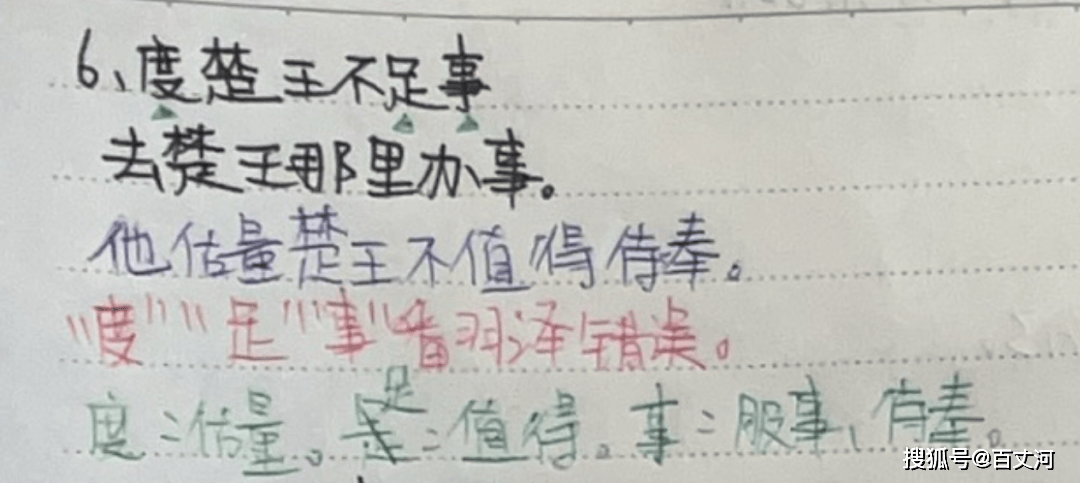 6、度楚王不足事
去楚王那里办事。
他估量楚王不值得侍奉。
"度""足""事"翻译错误。
度：估量。足：值得。事：服事、侍奉。
搜狐号@百丈河